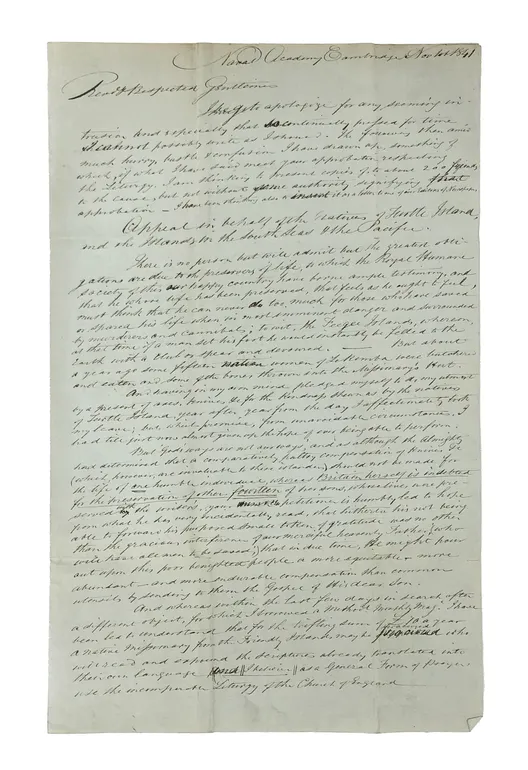 Naval Academy Cambridge Nov 1st 1841
Revd & Respected Gentlemen
I have to apologize for any seeming in-
trusion and especially that so continually pressed for time
I cannot possibly write as I should. The following then amid
much hurry bustle & confusion I have drawn up, something of
which, if what I have said meet your approbation respecting
the Liturgy. I am thinking to present copies of, to about 200 friends
to the cause, but not without some authority signifying
approbation
Appeal in behalf of the Natives of Turtle Island,
and the Islands in the South Seas & the Pacific.
There is no person but will admit that the greatest obli-
gations are due to the preservers of life, to which the Royal Humane
Society of this our happy country have borne ample testimony, and
that he whose life has been preserved, that feels as he ought to feel,
must think that he can never do too much for those who have saved
or spared his life when in most imminent danger and surrounded
by murderers and Cannibals; to wit, the Feejee Islands, whereon,
at that time if a man set his foot he would instantly be felled to the
Earth with a Club or spear and devoured. — But about
a year ago some fifteen women of Lakemba were butchered
and eaten and some of the bones thrown into the Missionary's Hut.
And having in my own mind pledged myself to do my utmost
by a present of axes, knives &c for the kindness shewn us by the natives
of Turtle Island, year after year from the day I affectionately took
my leave; but which promise, from unavoidable circumstances, I
had till just now almost given up the hope of ever being able to perform.
But God's ways are not our ways, and as although the Almighty
had determined that a comparatively paltry compensation of Knives &c
(which however are invaluable to these islanders) should not be made for
the life of one humble individual, whereas Britain herself is indebted
for the preservation of other fourteen of her sons, whose lives were pre-
served with the writers, your petitioner is humbly led to hope
from what he has very incidentally read, that hitherto his not being
able to forward his purposed small token of gratitude was no other
than the gracious interference of our merciful heavenly Father, (who
will have all men to be saved,) that in due time, He might pour
out upon this poor benighted people a more equitable & more
abundant and more endurable compensation than common
utensils by sending to them the Gospel of His dear Son.
And whereas within the last few days in search after
a different object, for which I borrowed a Mag: I have
been led to understand that for the trifling sum of £10 a year
a native Missionary from the Friendly Islands may be who
will read and expound the Scripture already translated into
their own language as a General Form of Prayer
use the incomparable Liturgy of the Church of England